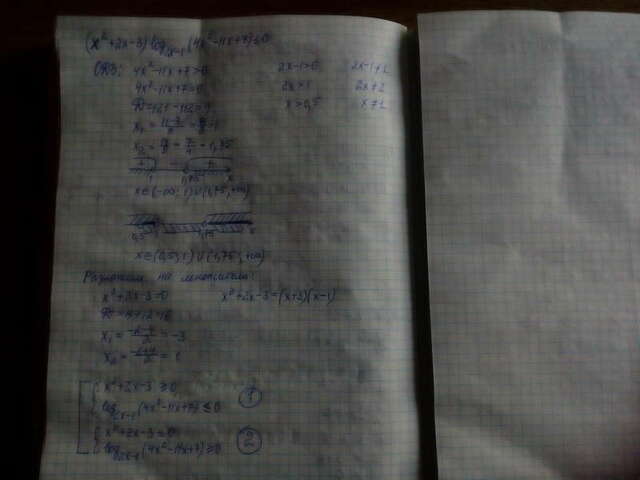 (x²+2x-3)log₂ₓ₋₁(4x²-11x+7)≤0
ОДЗ: 4x²-11x+7>0 2x-1>0 2x-1≠1
4x²-11x+7=0 2x>1 2x≠2
D=121-112=9 x>0,5 x≠1
x₁=(11-3)/8=8/8=1
x₂=14/8=7/4=1,75
+ - +
1 1,75 x
x∈(-∞;1)∪(1,75;+∞)
0,5 1 1,75 x
x∈(0,5;1)∪(1,75;+∞)
Разложим на множители:
x²+2x-3=0 x²+2x-3=(x+3)(x-1)
D=4+12=16
x₁=(-2-4)/2=-3
x₂=(-2+4)/2=1
x²+2x-3≥0
log₂ₓ₋₁(4x²-11x+7)≤0 1
x²+2x-3≤0
log₂ₓ₋₁(4x²-11x+7)≥0 2